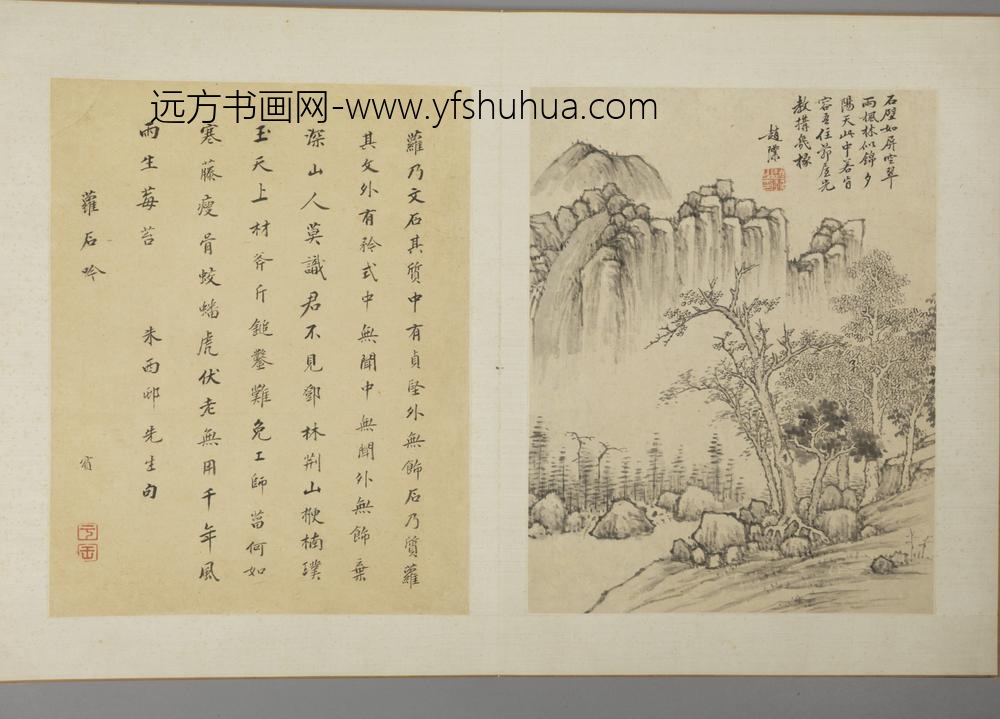 远方书画网-www.yfshuhua.com
石壁如屏空翠
雨楓林似錦夕
陽天此中若肯
容吾住茆屋先
教搆幾椽
趙澄
蘿乃文石其質中有貞堅外無飾石乃質蘿
其文外有矜式中無聞中無聞外無飾棄
深山人莫識君不見鄧林荊山楩楠璞
玉天上材斧斤鎚鑿難免工師菑何如
寒藤瘦骨蛟蟠虎伏老無用千年風
雨生莓苔 朱西邨先生句
蘿石吟